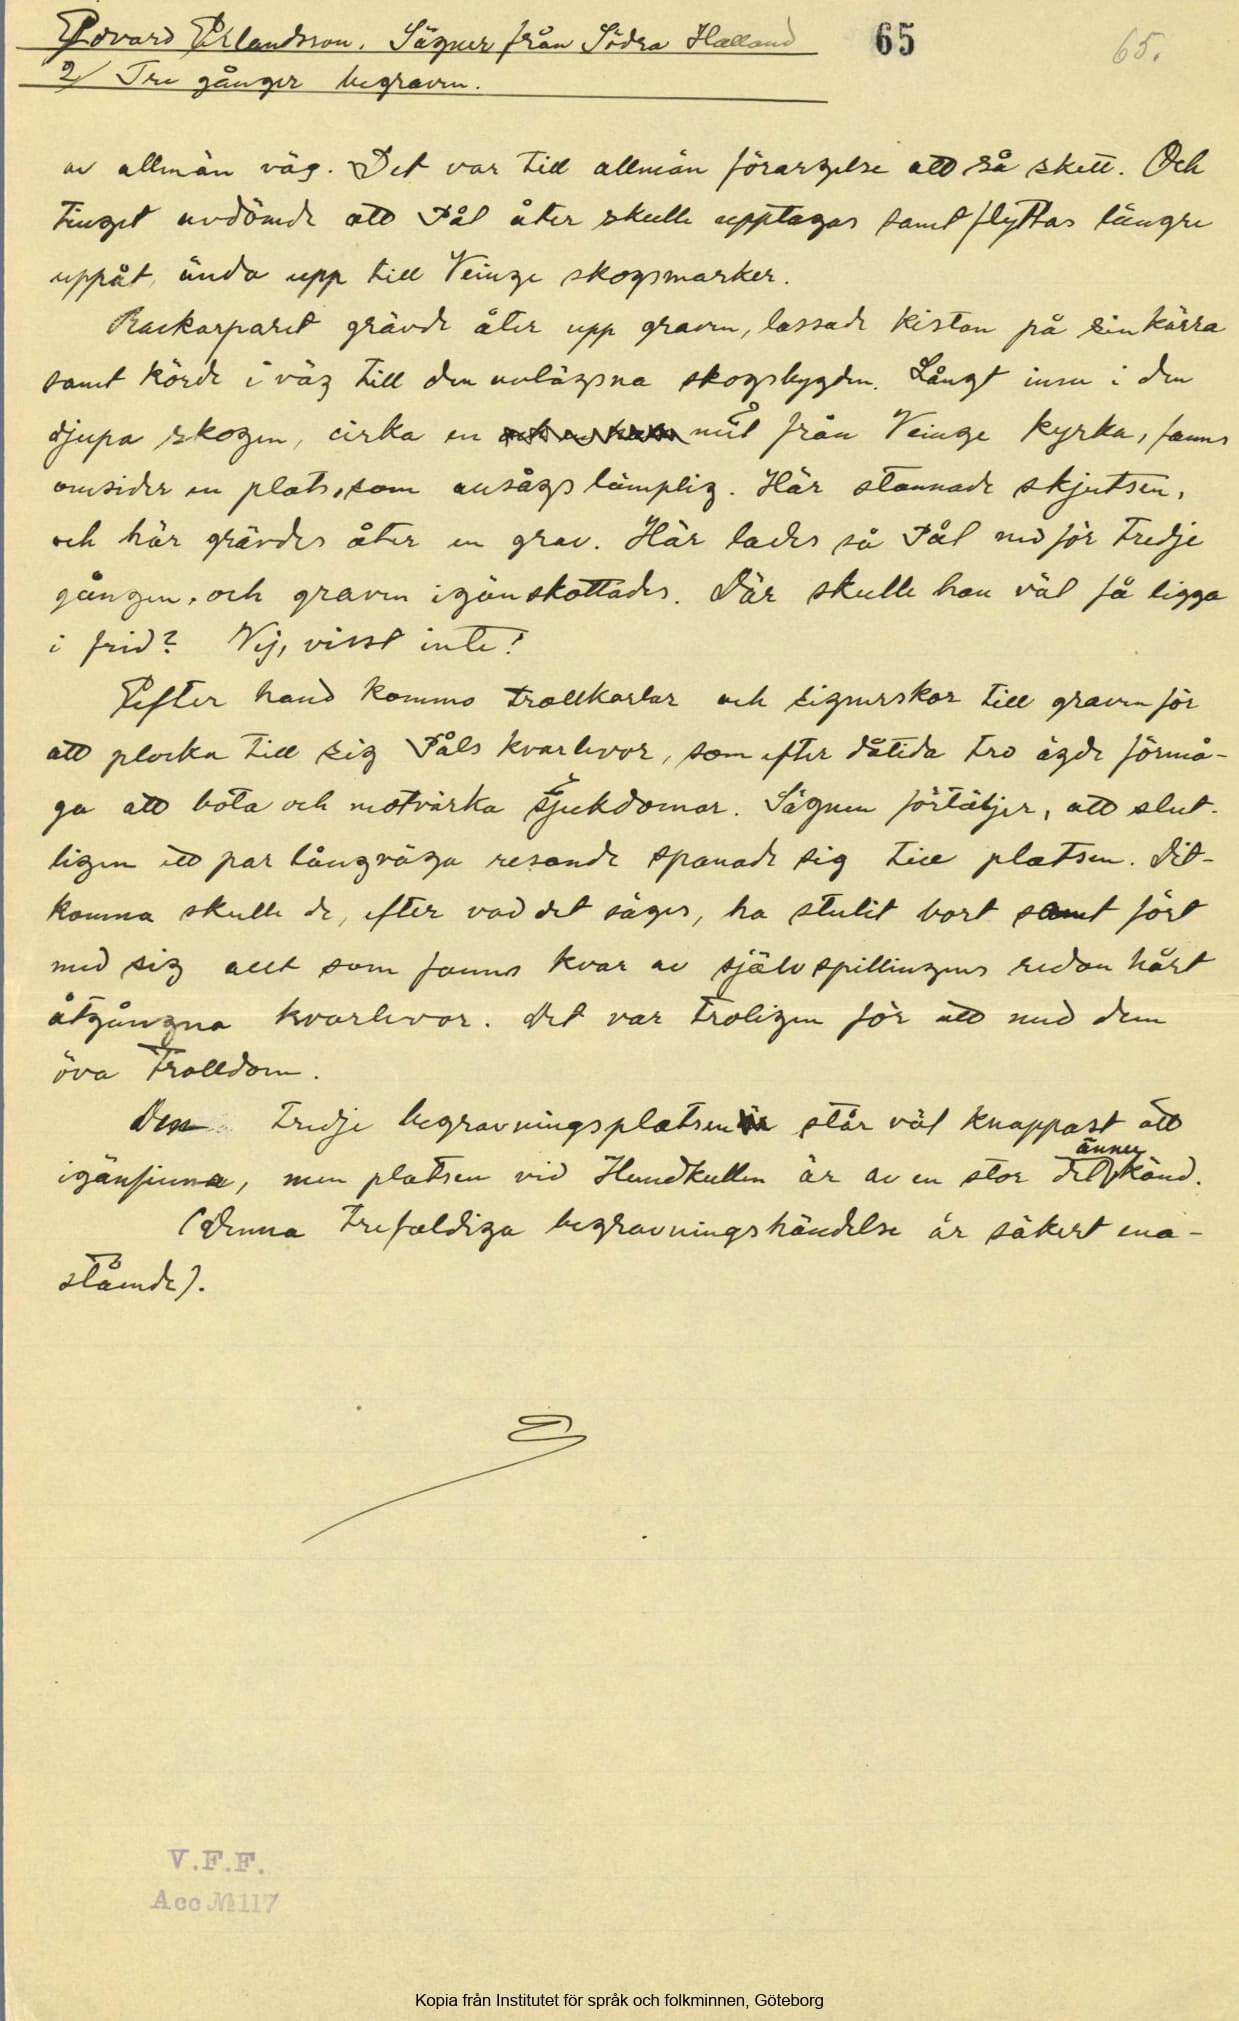 Edvard Erlandsson. Sägner från Södra Halland 65 65.
2/ Tre gånger begraven.
av allmän väg. Det var till allmän förargelse att så skett. Och
tinget avdömde att Pål åter skulle upptagas samt flyttas längre
uppåt, ända upp till Veinge skogsmarker.
Rackarparet grävde åter upp graven, lassade kistan på sin kärra
samt körde i väg till den avlägsna skogsbygden. Långt inne i den
djupa skogen, cirka en mil från Veinge kyrka, fanns
omsider en plats, som ansågs lämplig. Här stannade skjutsen,
och här grävdes åter en grav. Här lades så Pål ned för tredje
gången, och graven igänskottades. Där skulle han väl få ligga
i frid? Nej, visst inte!
Efter hand kommo trollkarlar och signerskor till graven för
att plocka till sig Påls kvarlevor, som efter dåtida tro ägde förmå-
ga att bota och motvärka sjukdomar. Sägnen förtäljer, att slut-
ligen ett par långväga resande spanade sig till platsen. Dit-
komna skulle de, efter vad det säges, ha stulit bort samt fört
med sig allt som fanns kvar av självspillingens redan hårt
åtgångna kvarlevor. Det var troligen för att med dem
öva trolldom.
Den tredje begravningsplatsen står väl knappast att
igänfinna, men platsen vid Hundkullen är av en stor del ännu känd.
(Denna trefaldiga begravningshändelse är säkert ena-
stående).
V.F.F.
Acc № 117
Kopia från Institutet för språk och folkminnen, Göteborg